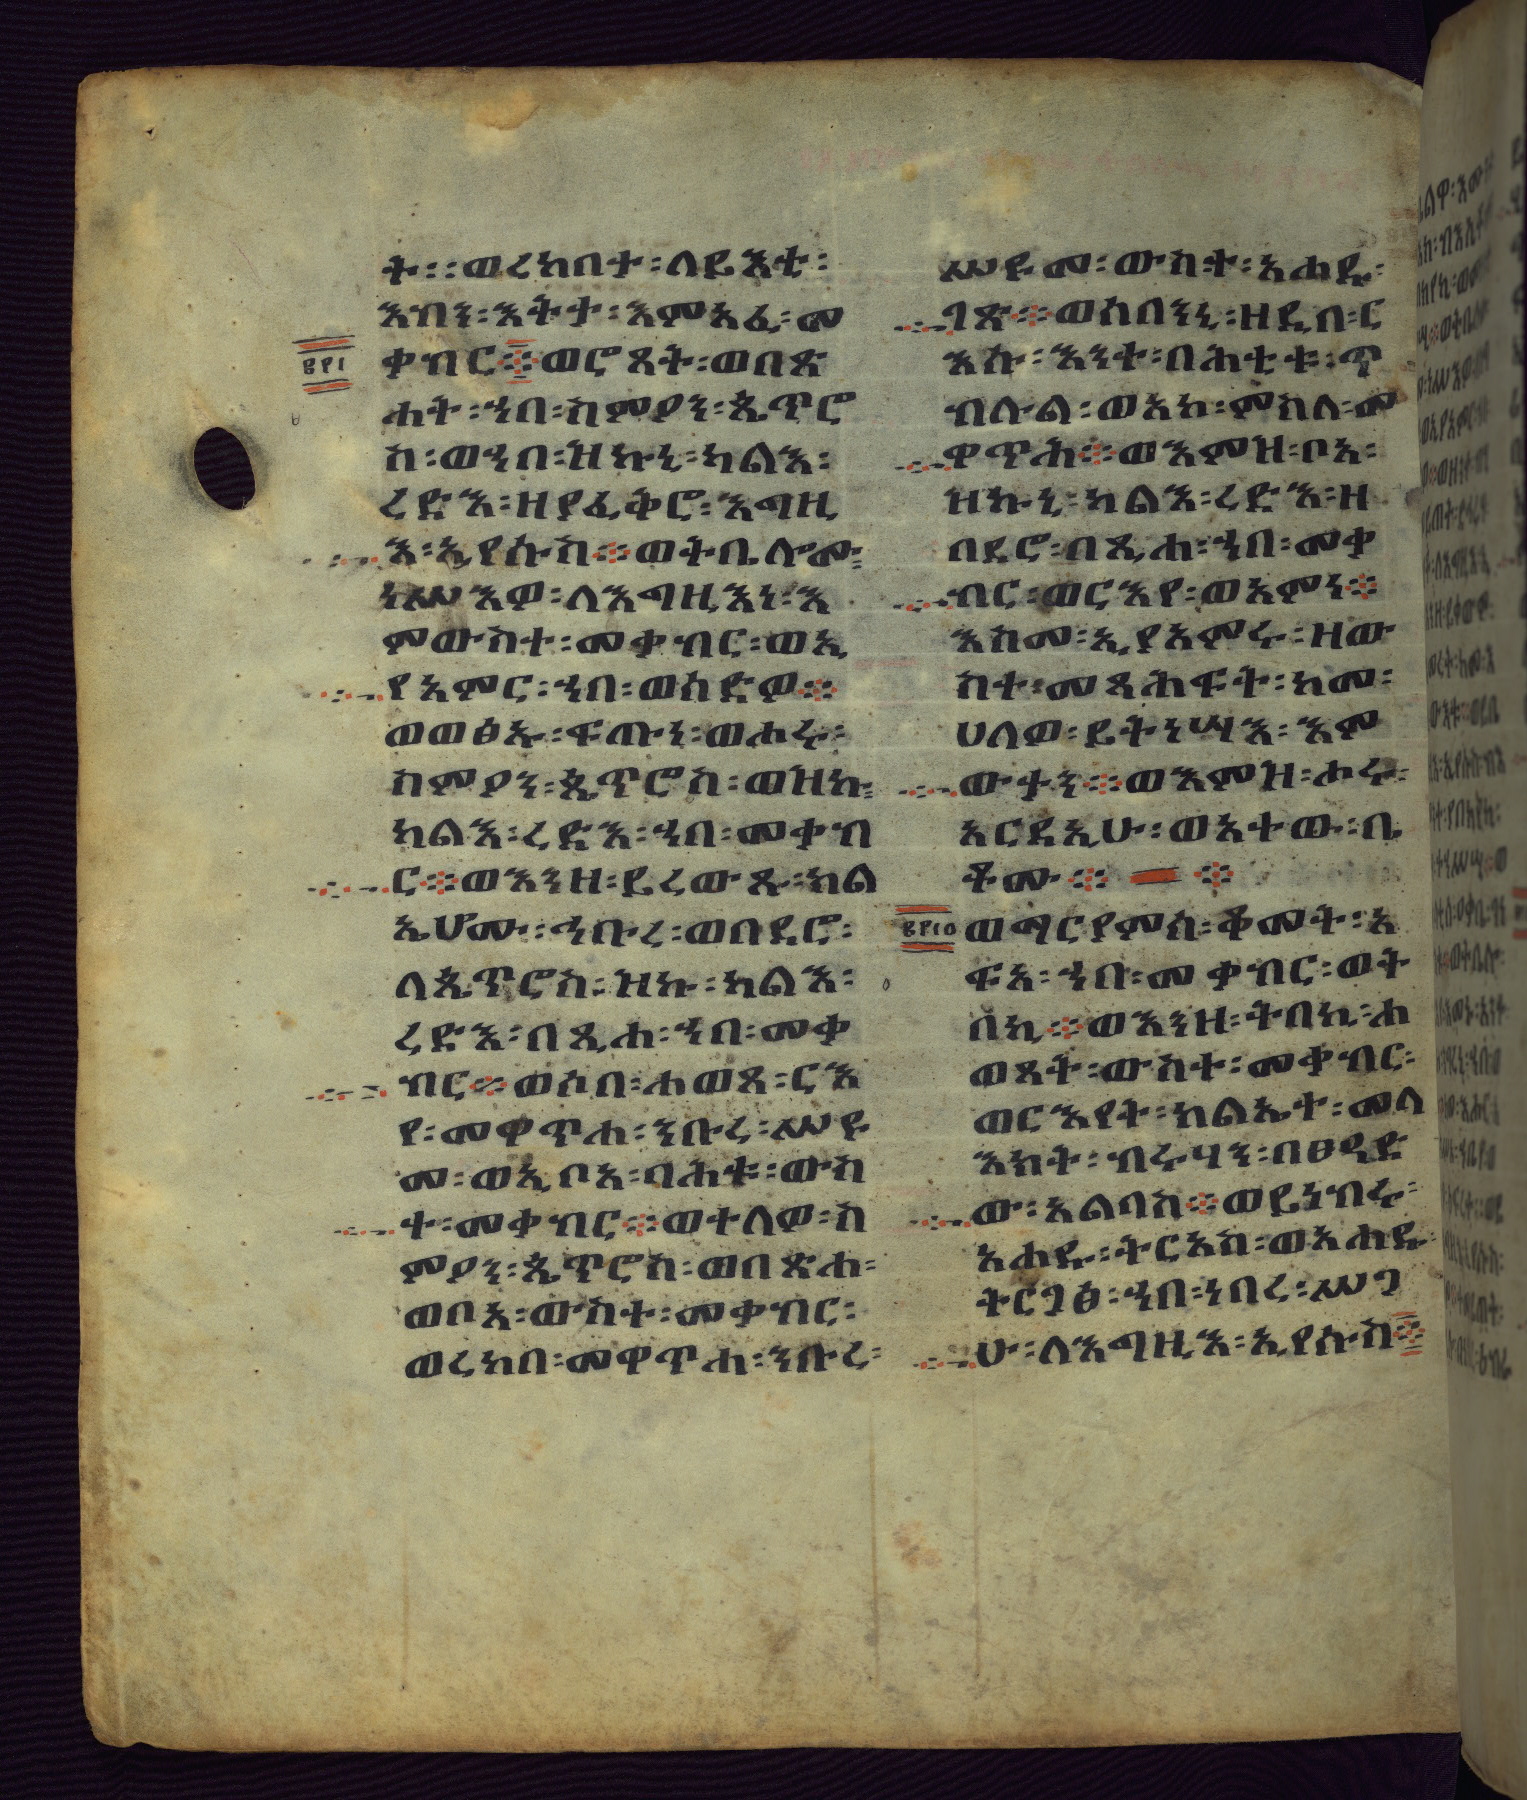 ት፡፡ወረከበተ፡ለይእቲ፡
እብን፡እትተ፡እምአፈ፡መ
ቀብር፨ወሮጸት፡ወበጽ
ሐት፡ኀበ፡ስምዖን፡ጴጥሮ
ስ፡ወኀበ፡ዝኩኒ፡ካልእ፡
ረድእ፡ዘያፈቅሮ፡እግዚ
እ፡ኢየሱስ፨ወትቤሎሙ፡
ነሥእዎ፡ለእግዚእነ፡እ
ምውስተ፡መቀብር፡ወኢ
የአምር፡ኀበ፡ወሰድዎ፨
ወወፅኡ፡ፍጡነ፡ወሐሩ፡
ስምዖን፡ጴጥሮስ፡ወዝኩ፡
ካልእ፡ረድእ፡ኀበ፡መቀብ
ር፨ወእንዘ፡ይረውጹ፡ክል
ኤሆሙ፡ኀቡረ፡ወበደሮ፡
ለጴጥሮስ፡ዝኩ፡ካልእ፡
ረድእ፡በጺሐ፡ኀበ፡መቀ
ብር፨ወሶበ፡ሐወጸ፡ርእ
የ፡መዋጥሐ፡ንቡረ፡ሥዩ
መ፡ወኢቦአ፡ባሕቱ፡ውስ
ተ፡መቀብር፨ወተለዎ፡ስ
ምዖን፡ጴጥሮስ፡ወበጽሐ፡
ወቦአ፡ውስተ፡መቀብር፡
ወረከበ፡መዋጥሐ፡ንቡረ፡
፸፱፩
ሥዩመ፡ውስተ፡አሐዱ፡
ገጽ፨ወሰበንኒ፡ዘዲበ፡ር
እሱ፡እንተ፡በሕቲቱ፡ጥ
ብሉል፡ወአኮ፡ምስለ፡መ
ዋጥሕ፨ወእምዝ፡ቦአ፡
ዝኩኒ፡ካልእ፡ረድእ፡ዘ
በደሮ፡በጺሐ፡ኀበ፡መቀ
ብር፡ወርእየ፡ወአምነ፨
እስመ፡ኢያአምሩ፡ዘው
ስተ፡መጻሕፍት፡ከመ፡
ሀለዎ፡ይትነሣእ፡እም
ውታን፨ወእምዝ፡ሐሩ፡
አርዳኢሁ፡ወአተው፡ቤ
ቶሙ፨ ፨
ወማርያምሰ፡ቆመት፡አ
ፍአ፡ኀበ፡መቀብር፡ወት
በኪ፨ወእንዘ፡ትበኪ፡ሐ
ወጸት፡ውስተ፡መቀብር፡
ወርእየት፡ክልኤተ፡መላ
እክት፡ብሩሃን፡በፀዓድ
ው፡አልባስ፨ወይነብሩ፡
አሐዱ፡ትርአሰ፡ወአሐዱ፡
ትርጋፀ፡ኀበ፡ነበረ፡ሥጋ
ሁ፡ለእግዚእ፡ኢየሱስ፨